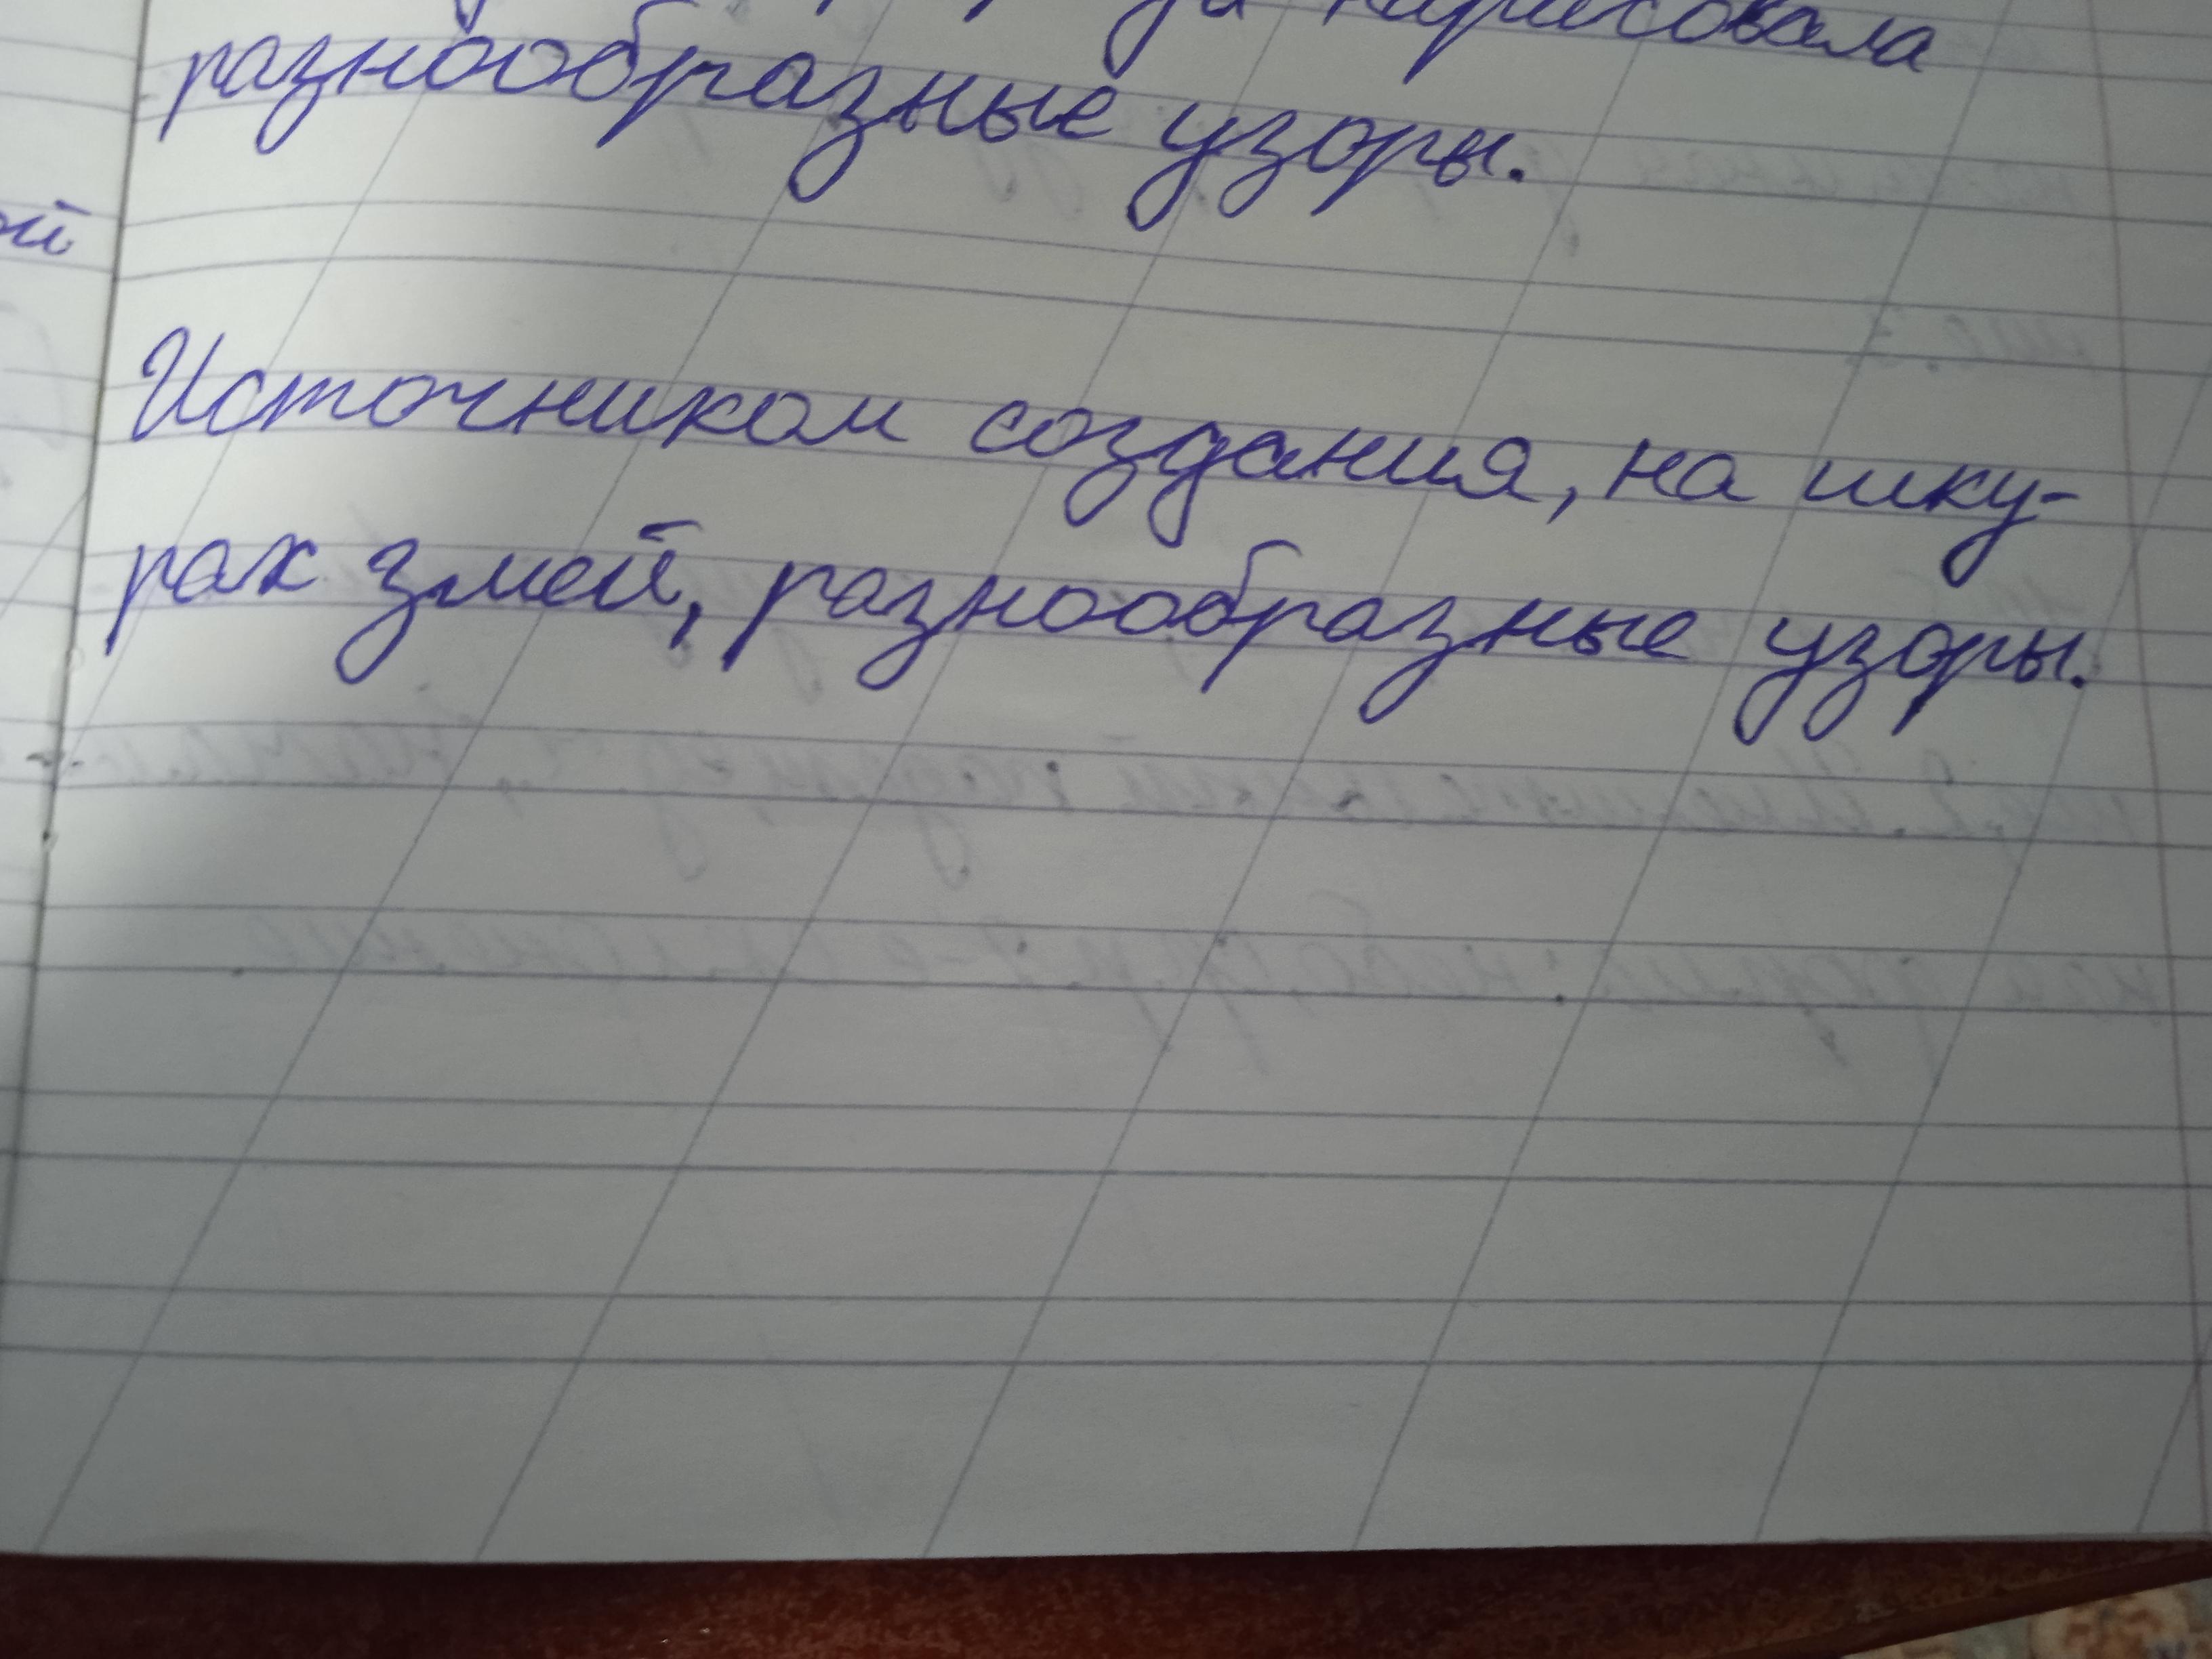 нарисовала
разнообразные узоры.
ой
Источником создания, на шку-
рах змей, разнообразные узоры.